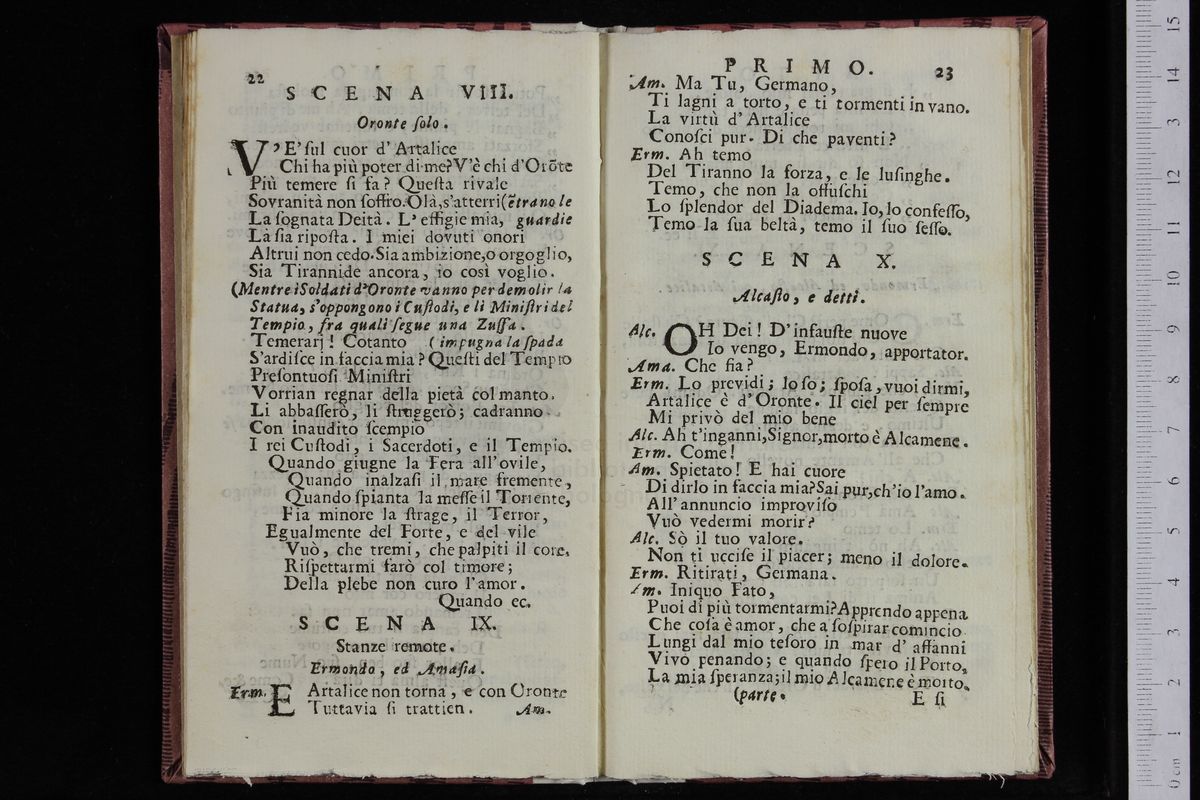 22
SCENA VIII.
Oronte ſolo.
V' E' ſul cuor d' Artalice
Chi ha più poter di me? V'è chi d'Orõte
Più temere ſi fa? Queſta rivale
Sovranità non ſoffro. Olà, s'atterri (ẽtrano le
La ſognata Deità. L' effigie mia, guardie
Là ſia ripoſta. I miei dovuti onori
Altrui non cedo. Sia ambizione, o orgoglio,
Sia Tirannide ancora, io così voglio.
(Mentre i Soldati d'Oronte vanno per demolir la
Statua, s'oppongono i Cuſtodi, e li Miniſtri del
Tempio, fra quali ſegue una Zuffa.
Temerarj! Cotanto (impugna la ſpada
S'ardiſce in faccia mia? Queſti del Tempio
Preſontuoſi Miniſtri
Vorrian regnar della pietà col manto.
Li abbaſſerò, li ſtruggerò; cadranno
Con inaudito ſcempio
I rei Cuſtodi, i Sacerdoti, e il Tempio.
Quando giugne la Fera all'ovile,
Quando inalzaſi il mare fremente,
Quando ſpianta la meſſe il Torrente,
Fia minore la ſtrage, il Terror,
Egualmente del Forte, e del vile
Vuò, che tremi, che palpiti il core,
Riſpettarmi farò col timore;
Della plebe non curo l'amor.
Quando ec.
SCENA IX.
Stanze remote.
Ermondo, ed Amaſia.
Erm. E Artalice non torna, e con Oronte
Tuttavia ſi trattien. Am.
PRIMO. 23
Am. Ma Tu, Germano,
Ti lagni a torto, e ti tormenti in vano.
La virtù d' Artalice
Conoſci pur. Di che paventi?
Erm. Ah temo
Del Tiranno la forza, e le luſinghe.
Temo, che non la offuſchi
Lo ſplendor del Diadema. Io, lo confeſſo,
Temo la ſua beltà, temo il ſuo ſeſſo.
SCENA X.
Alcaſto, e detti.
Alc. OH Dei! D'infauſte nuove
Io vengo, Ermondo, apportator.
Ama. Che fia?
Erm. Lo previdi; lo ſo; ſpoſa, vuoi dirmi,
Artalice è d'Oronte. Il ciel per ſempre
Mi privò del mio bene
Alc. Ah t'inganni, Signor, morto è Alcamene.
Erm. Come!
Am. Spietato! E hai cuore
Di dirlo in faccia mia? Sai pur, ch'io l'amo.
All' annuncio improviſo
Vuò vedermi morir?
Alc. Sò il tuo valore.
Non ti ucciſe il piacer; meno il dolore.
Erm. Ritirati, Germana.
Am. Iniquo Fato,
Puoi di più tormentarmi? Apprendo appena
Che coſa è amor, che a ſoſpirar comincio
Lungi dal mio teſoro in mar d' affanni
Vivo penando; e quando ſpero il Porto,
La mia ſperanza; il mio Alcamene è morto.
(parte.
E ſi